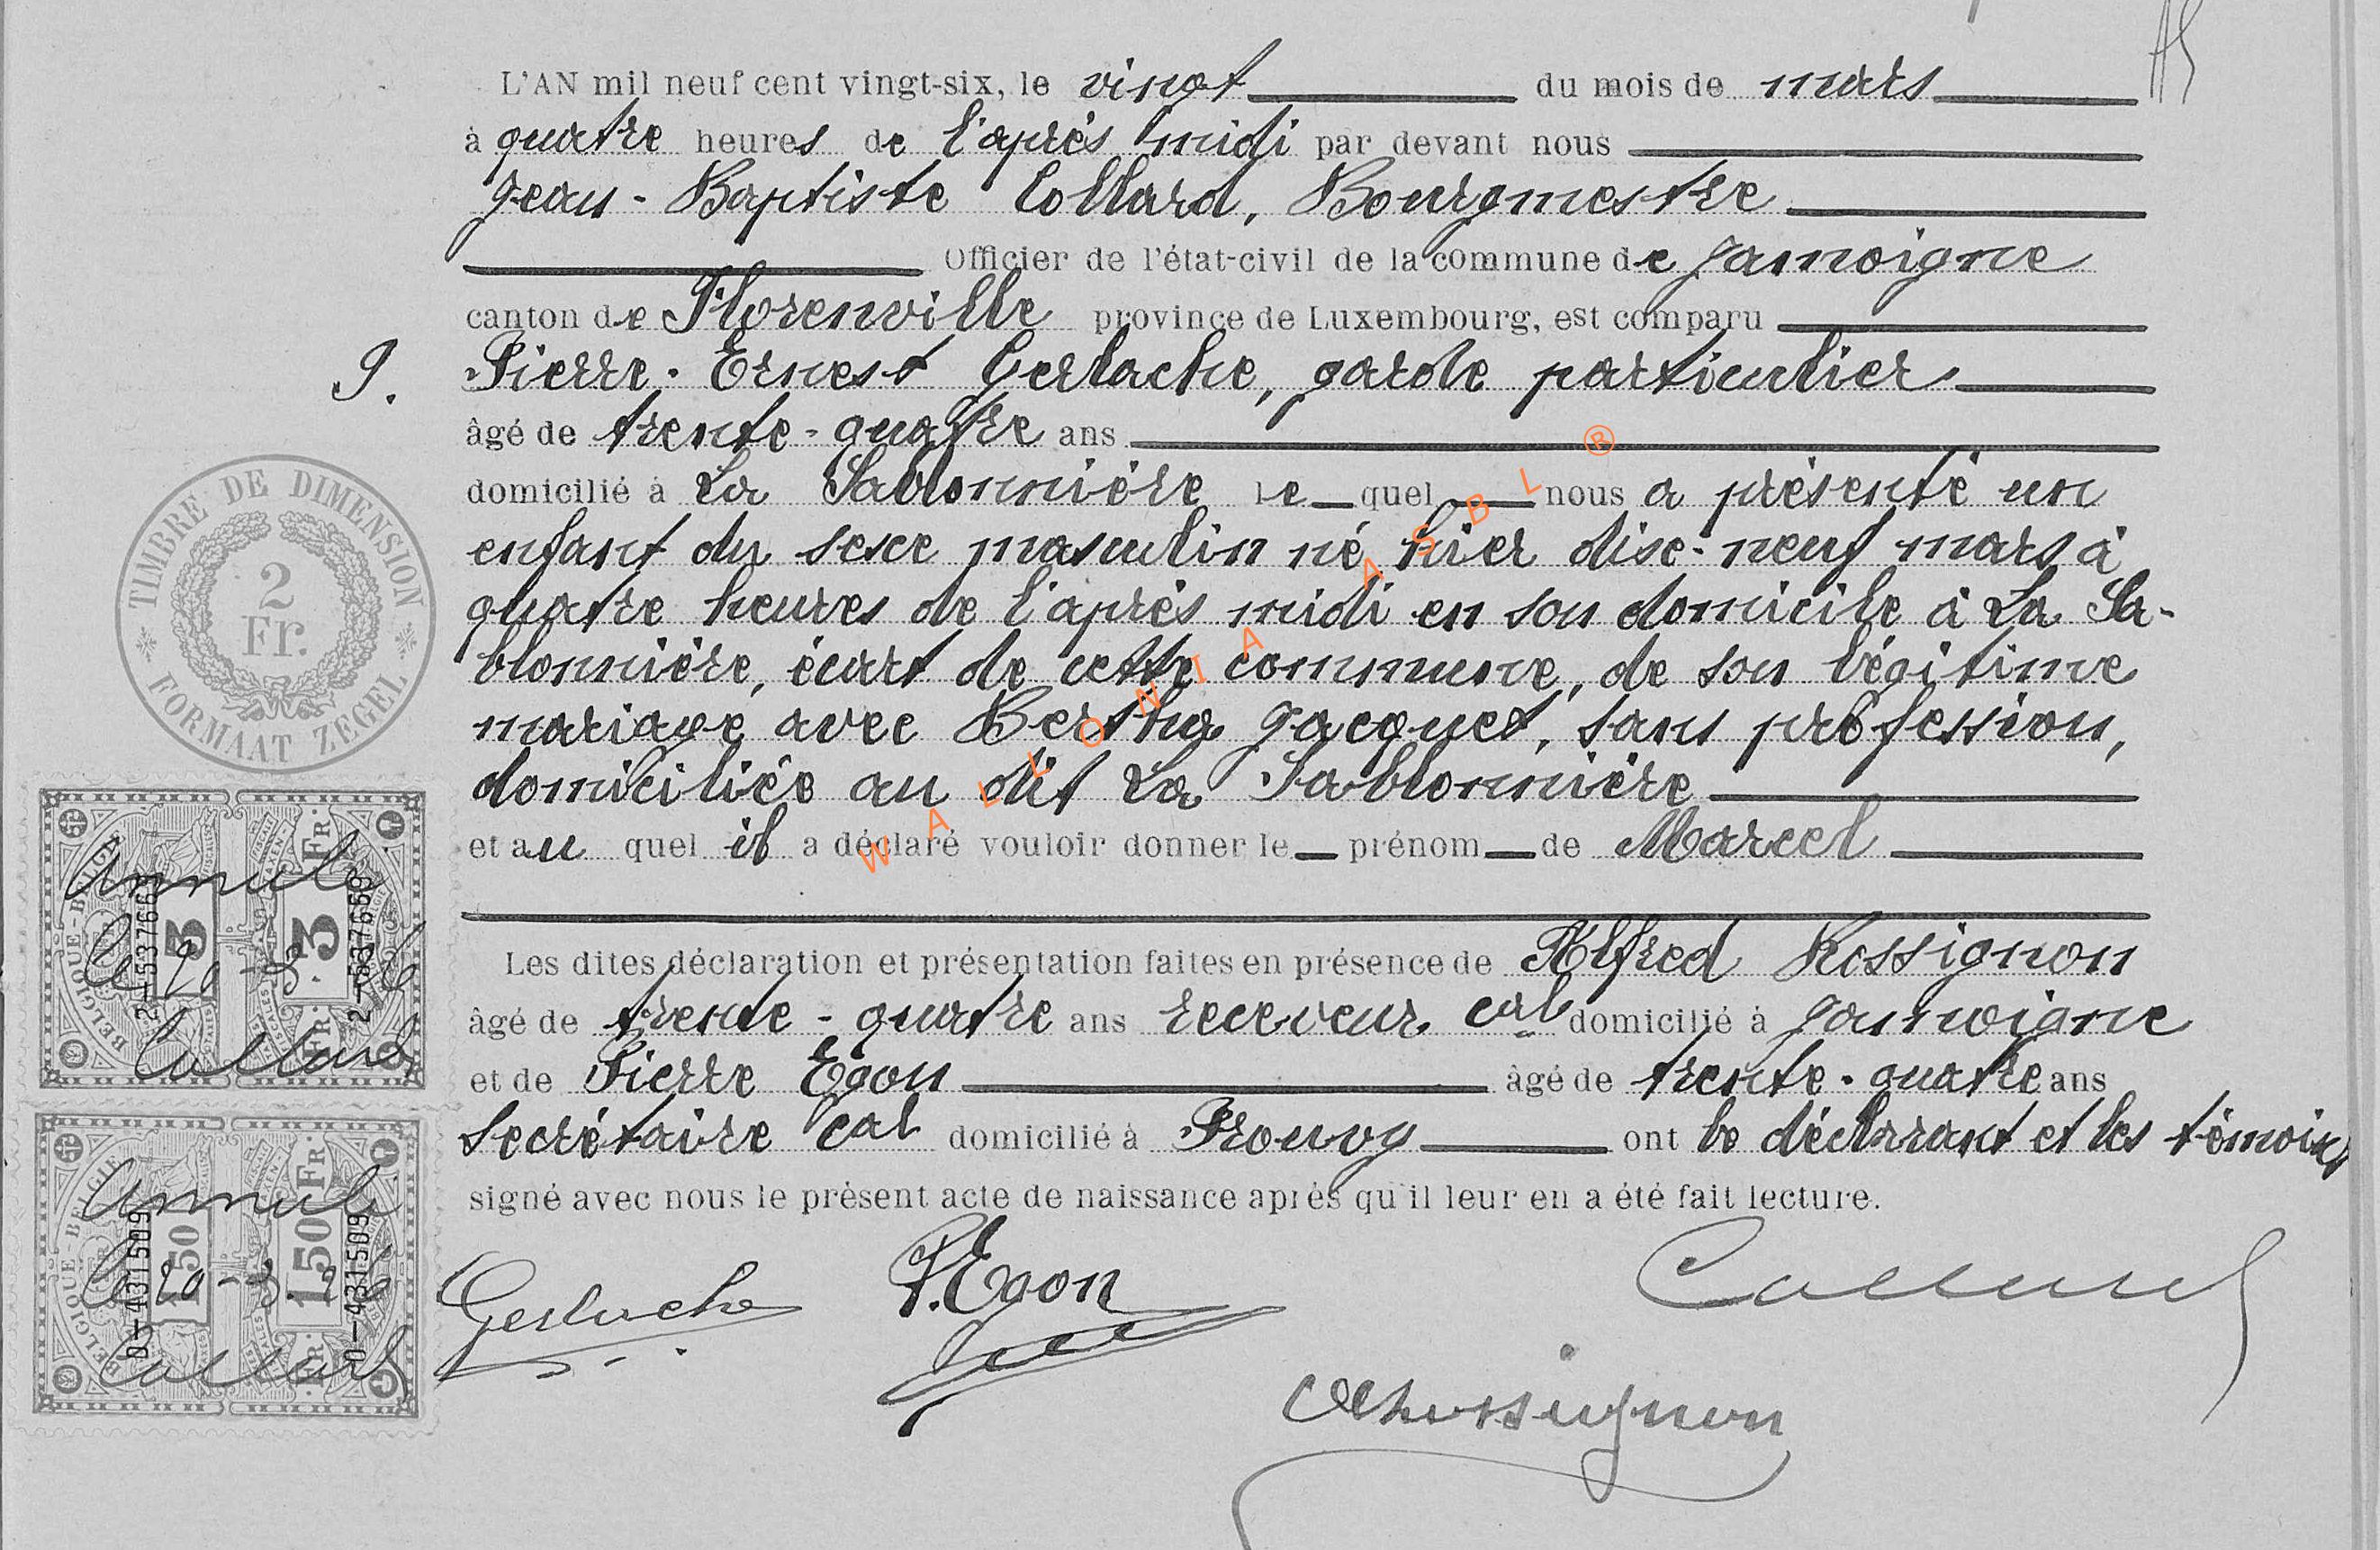 L'AN mil neuf cent vingt-six, le vingt du mois de mars
à quatre heures de l'après midi par devant nous
Jean-Baptiste Collard, Bourgmestre
Officier de l'état-civil de la commune de Jamoigne
canton de Florenville province de Luxembourg, est comparu
9. Pierre-Ernest Gerlache, garde particulier
âgé de trente-quatre ans
domicilié à La Sablonnière lequel nous a présenté un
enfant du sexe masculin né hier dix-neuf mars à
quatre heures de l'après midi en son domicile à La Sa-
blonnière, écart de cette commune, de son légitime
mariage avec Bertha Jacquet, sans profession,
domiciliée au dit La Sablonnière
et au quel il a déclaré vouloir donner le prénom de Marcel
Les dites déclaration et présentation faites en présence de Alfred Rossignon
âgé de trente-quatre ans receveur cal domicilié à Jamoigne
et de Pierre Egon âgé de trente-quatre ans
secrétaire cal domicilié à Prouvy ont le déclarant et les témoins
signé avec nous le présent acte de naissance après qu'il leur en a été fait lecture.
Gerlache P. Egon Collard
ARossignon
TIMBRE DE DIMENSION
2
Fr.
FORMAAT ZEGEL
BELGIQUE-BELGIË
3 3 FR.
2-537669 2-537669
Annulé
le 20-3-26
Collard
BELGIQUE-BELGIË
1.50 1.50 FR.
0-431509 0-431509
Annulé
le 20-3-26
Collard
WALLONIA ASBL ®